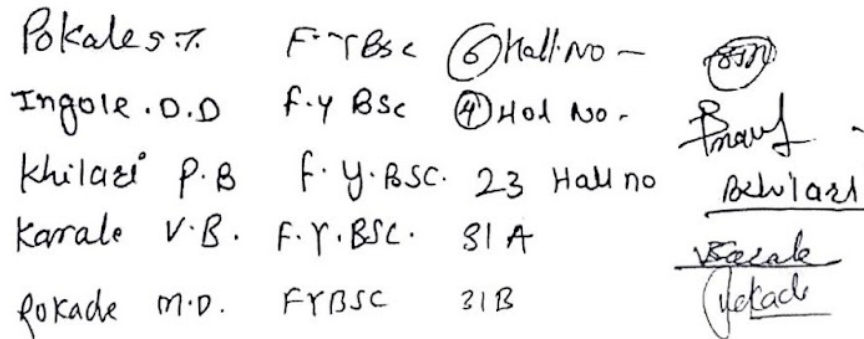 Pokale S.T. F.YBsc 6 Hall.No -
Ingole .D.D F.Y BSc 4 Hol No.
Khilari P.B F.Y.BSC. 23 Hall no
Karale V.B. F.Y.BSC. 31 A
Pokade M.D. FYBSC 31B